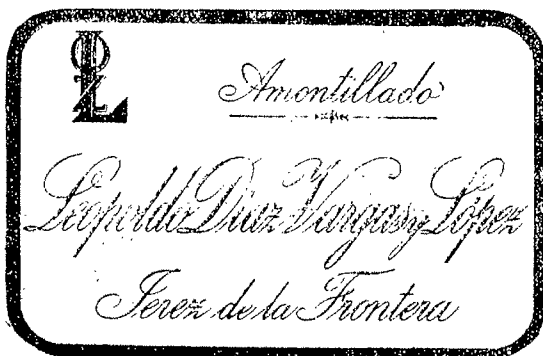 Amontillado
Leopoldo Diaz Vargas y López
Jerez de la Frontera